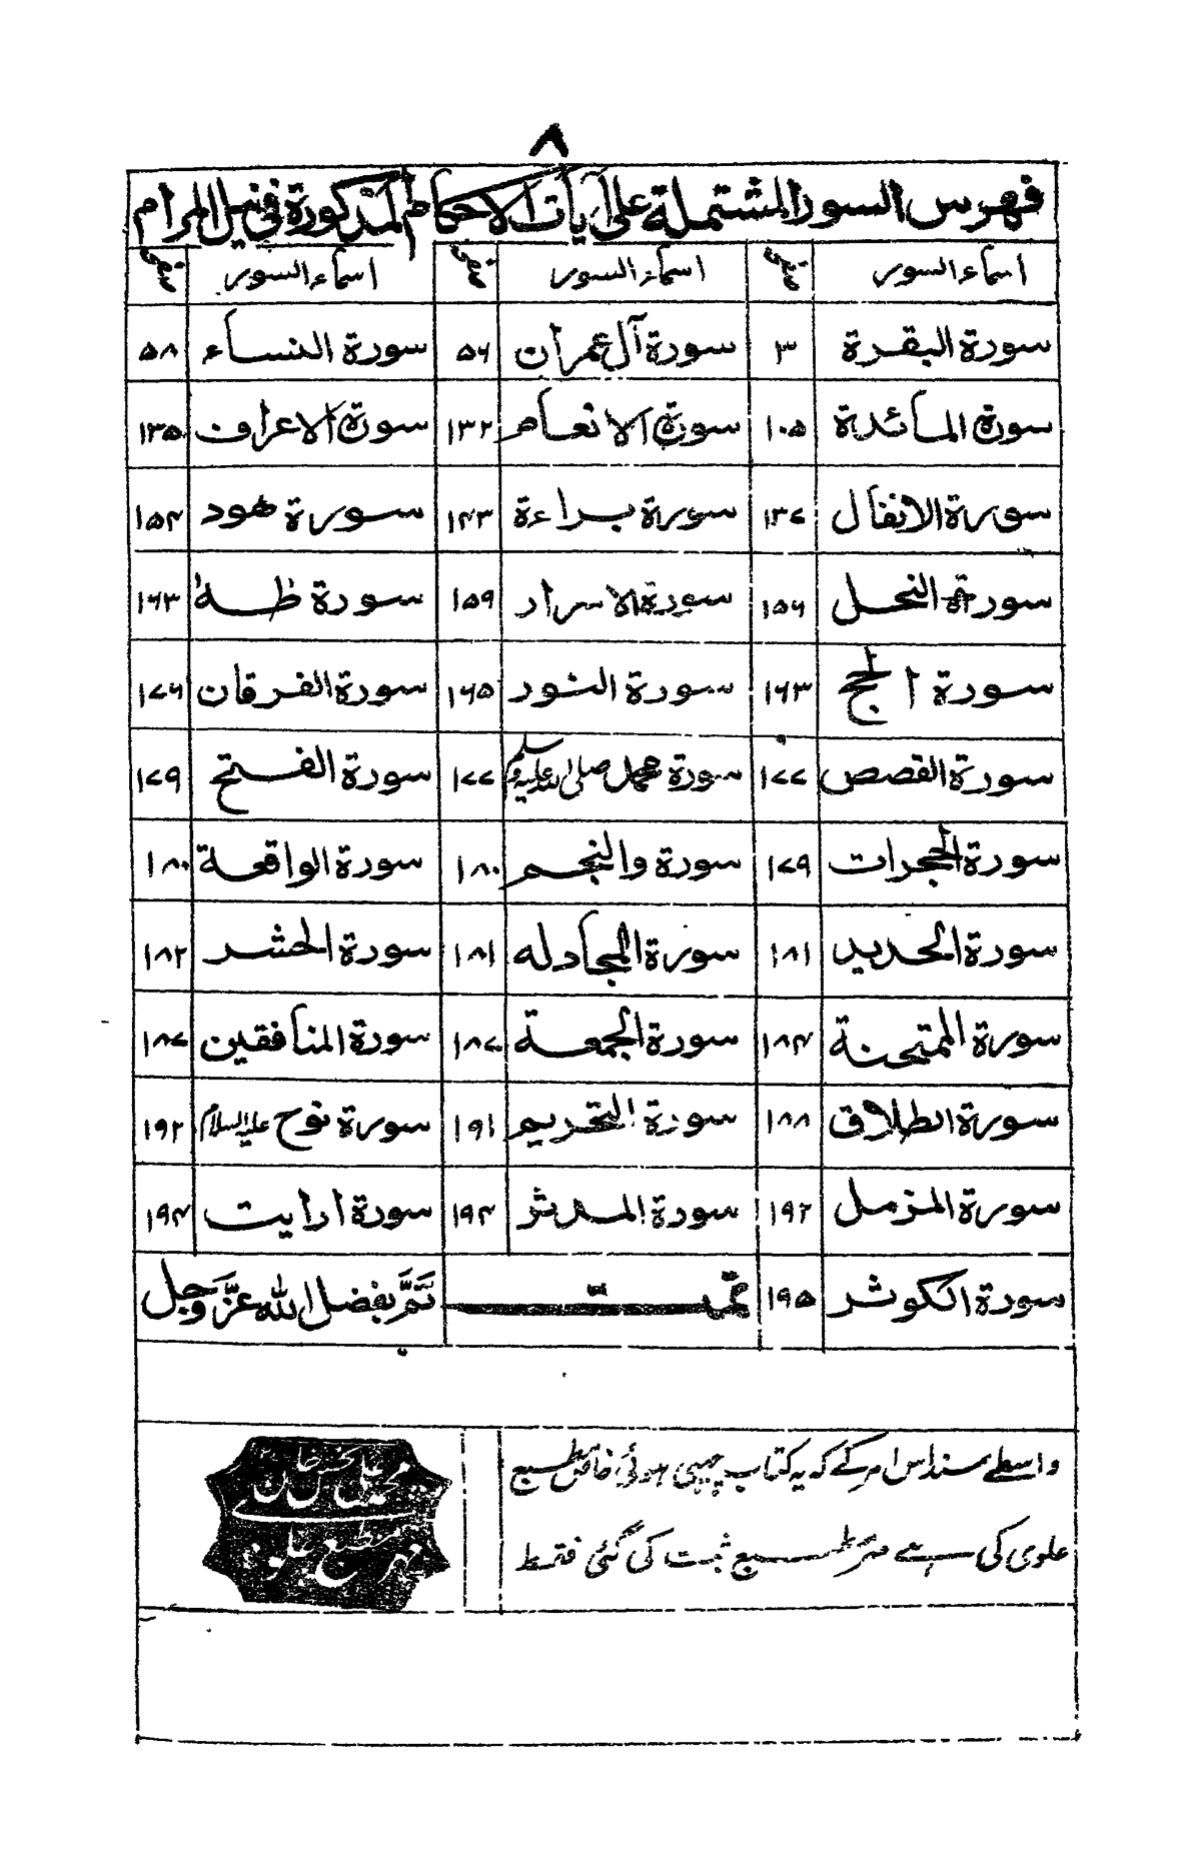 ٨
فهرس السور المشتملة على آيات الاحكام المذكورة في نيل المرام
اسماء السور صفحه اسماء السور صفحه اسماء السور صفحه
سورة البقرة ٣ سورة آل عمران ۵۶ سورة النساء ۵۸
سورة المائدة ۱۰۵ سورة الانعام ۱۳۲ سورة الاعراف ۱۳۵
سورة الانفال ۱۳۷ سورة براءة ۱۴۳ سورة هود ۱۵۴
سورة النحل ۱۵۶ سورة الاسراء ۱۵۹ سورة طه ۱۶۳
سورة الحج ۱۶۳ سورة النور ۱۶۵ سورة الفرقان ۱۷۶
سورة القصص ۱۷۷ سورة محمد صلى الله عليه وسلم ۱۷۷ سورة الفتح ۱۷۹
سورة الحجرات ۱۷۹ سورة والنجم ۱۸۰ سورة الواقعة ۱۸۰
سورة الحديد ۱۸۱ سورة المجادله ۱۸۱ سورة الحشر ۱۸۲
سورة الممتحنة ۱۸۴ سورة الجمعة ۱۸۷ سورة المنافقين ۱۸۷
سورة الطلاق ۱۸۸ سورة التحريم ۱۹۱ سورة نوح عليه السلام ۱۹۲
سورة المزمل ۱۹۲ سورة المدثر ۱۹۴ سورة ارايت ۱۹۴
سورة الكوثر ۱۹۵ تمت تم بفضل الله عز وجل
واسطے سند اس امر کے کہ یہ کتاب چھپی ہوئی خاص مطبع
علوی کی ہے مہر مطبع ثبت کی گئی فقط
محمد علی بخش خان
مہر مطبع علوی